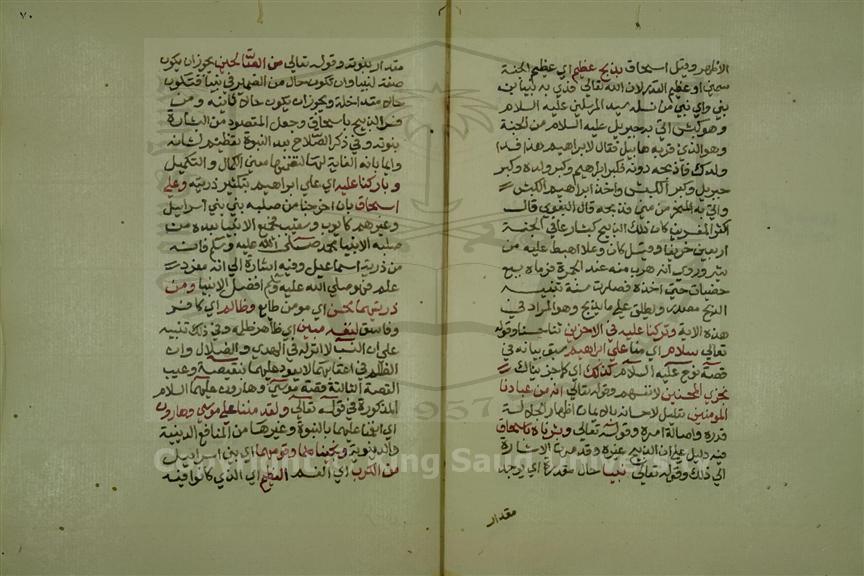 الاظهر وقيل اسحاق بذبح عظيم اي عظيم الجثة
سمين او عظيم القدر لان الله تعالى فدى به نبيا ابن
نبي واي نبي من نسله سيد المرسلين عليه السلام
وهو كبش اتى به جبريل عليه السلام من الجنة
وهو الذي قربه هابيل فقال لابراهيم هذا فدا
ولدك فاذبحه دونه فكبر ابراهيم وكبر ولده وكبر
جبريل وكبر الكبش واخذ ابراهيم الكبش
واتى به المنحر من منى فذبحه قال البغوي قال
اكثر المفسرين كان ذلك الذبح كبشا رعى في الجنة
اربعين خريفا وقيل كان وعلا اهبط عليه من
ثبير وروي انه هرب منه عند الجمرة فرماه بسبع
حصيات حتى اخذه فصارت سنة تنبيه
الذبح مصدر ويطلق على ما يذبح وهو المراد في
هذه الاية وتركنا عليه في الاخرين ثنا حسنا وقوله
تعالى سلام اي منا على ابراهيم سبق بيانه في
قصة نوح عليه السلام كذلك اي كما جزيناك
نجزي المحسنين لانفسهم وقوله تعالى انه من عبادنا
المؤمنين تعليل لاحسانه بالايمان اظهارا لجلالة
قدره واصالة امره وقوله تعالى وبشرناه باسحاق
فيه دليل على ان الذبيح غيره وقد مرت الاشارة
الى ذلك وقوله تعالى نبيا حال مقدرة اي يوجد
مقدار
٧٠
مقدار بنبوته وقوله تعالى من الصالحين يجوز ان يكون
صفة لنبيا وان تكون حال من الضمير في نبيا فتكون
حالا متداخلة ويجوز ان يكون حالا ثانية ومن
فسر الذبيح باسحاق جعل المقصود من البشارة
بنبوته وفي ذكر الصلاح بعد النبوة تعظيم لشانه
وايما بانه الغاية لها لتضمنها معنى الكمال والتكميل
وباركنا عليه اي على ابراهيم بتكثير ذريته وعلى
اسحاق بان اخرجنا من صلبه نبي بني اسرايل
وغيرهم كايوب وشعيب فجميع الانبيا بعده من
صلبه الانبيا محمد صلى الله عليه وسلم فانه
من ذرية اسماعيل وفيه اشارة الى انه مفرد
علم فهو صلى الله عليه وسلم افضل الانبيا ومن
ذريتهما محسن اي مومن طايع وظالم اي كافر
وفاسق لنفسه مبين اي ظاهر ظلمه وفي ذلك تنبيه
على ان النسب لا اثر له في الهدى والضلال وان
الظلم في اعقابهما لا يعود عليهما بنقيصة وعيب
القصة الثالثة قصة موسى وهارون عليهما السلام
المذكورة في قوله تعالى ولقد مننا على موسى وهارون
اي انعمنا عليهما بالنبوة وغيرها من المنافع الدينية
والدنيوية ونجيناهما وقومهما اي بني اسرايل
من الكرب اي الغم العظيم اي الذي كانوا فيه